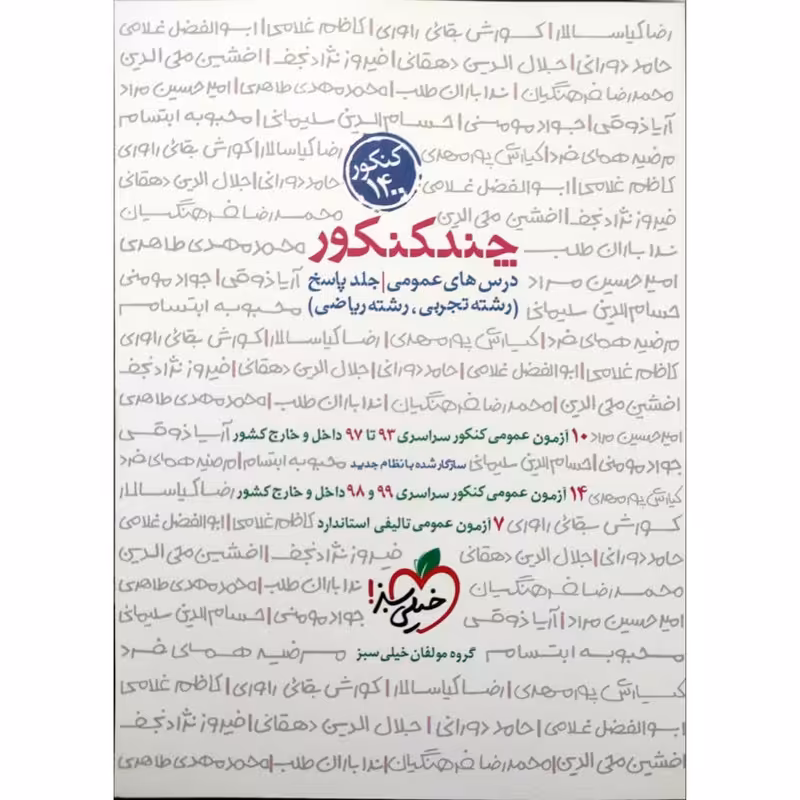 رضا کیاسالار | کورش بقائی راوری | کاظم غلامی | ابوالفضل غلامی
حامد دورانی | جلال الدین دهقانی | فیروز نژادنجف | افشین محی الدین
محمدرضا فرهنگیان | ندا باران طلب | محمدمهدی طاهری | امیرحسین مراد
آریا ذوقی | جواد مومنی | حسام الدین سلیمانی | محبوبه ابتسام
مرضیه همای فرد | کیارش پورمهدی رضا کیاسالار | کورش بقائی راوری
کاظم غلامی | ابوالفضل غلامی حامد دورانی | جلال الدین دهقانی
کنکور
۱۴۰۰
فیروز نژادنجف | افشین محی الدین محمدرضا فرهنگیان
ندا باران طلب محمدمهدی طاهری
چند کنکور
امیرحسین مراد آریا ذوقی | جواد مومنی
درس های عمومی | جلد پاسخ
حسام الدین سلیمانی محبوبه ابتسام
(رشته تجربی، رشته ریاضی)
مرضیه همای فرد | کیارش پورمهدی | رضا کیاسالار | کورش بقائی راوری
کاظم غلامی | ابوالفضل غلامی | حامد دورانی | جلال الدین دهقانی | فیروز نژادنجف
افشین محی الدین | محمدرضا فرهنگیان | ندا باران طلب | محمدمهدی طاهری
امیرحسین مراد ۱۰ آزمون عمومی کنکور سراسری ۹۳ تا ۹۷ داخل و خارج کشور آریا ذوقی
جواد مومنی | حسام الدین سلیمانی سازگار شده با نظام جدید محبوبه ابتسام | مرضیه همای فرد
کیارش پورمهدی ۱۴ آزمون عمومی کنکور سراسری ۹۹ و ۹۸ داخل و خارج کشور رضا کیاسالار
کورش بقائی راوری ۷ آزمون عمومی تالیفی استاندارد کاظم غلامی | ابوالفضل غلامی
حامد دورانی | جلال الدین دهقانی فیروز نژادنجف | افشین محی الدین
محمدرضا فرهنگیان ندا باران طلب | محمدمهدی طاهری
خیلی سبز!
امیرحسین مراد | آریا ذوقی جواد مومنی | حسام الدین سلیمانی
محبوبه ابتسام گروه مولفان خیلی سبز مرضیه همای فرد
کیارش پورمهدی | رضا کیاسالار | کورش بقائی راوری | کاظم غلامی
ابوالفضل غلامی | حامد دورانی | جلال الدین دهقانی | فیروز نژادنجف
افشین محی الدین | محمدرضا فرهنگیان | ندا باران طلب | محمدمهدی طاهری